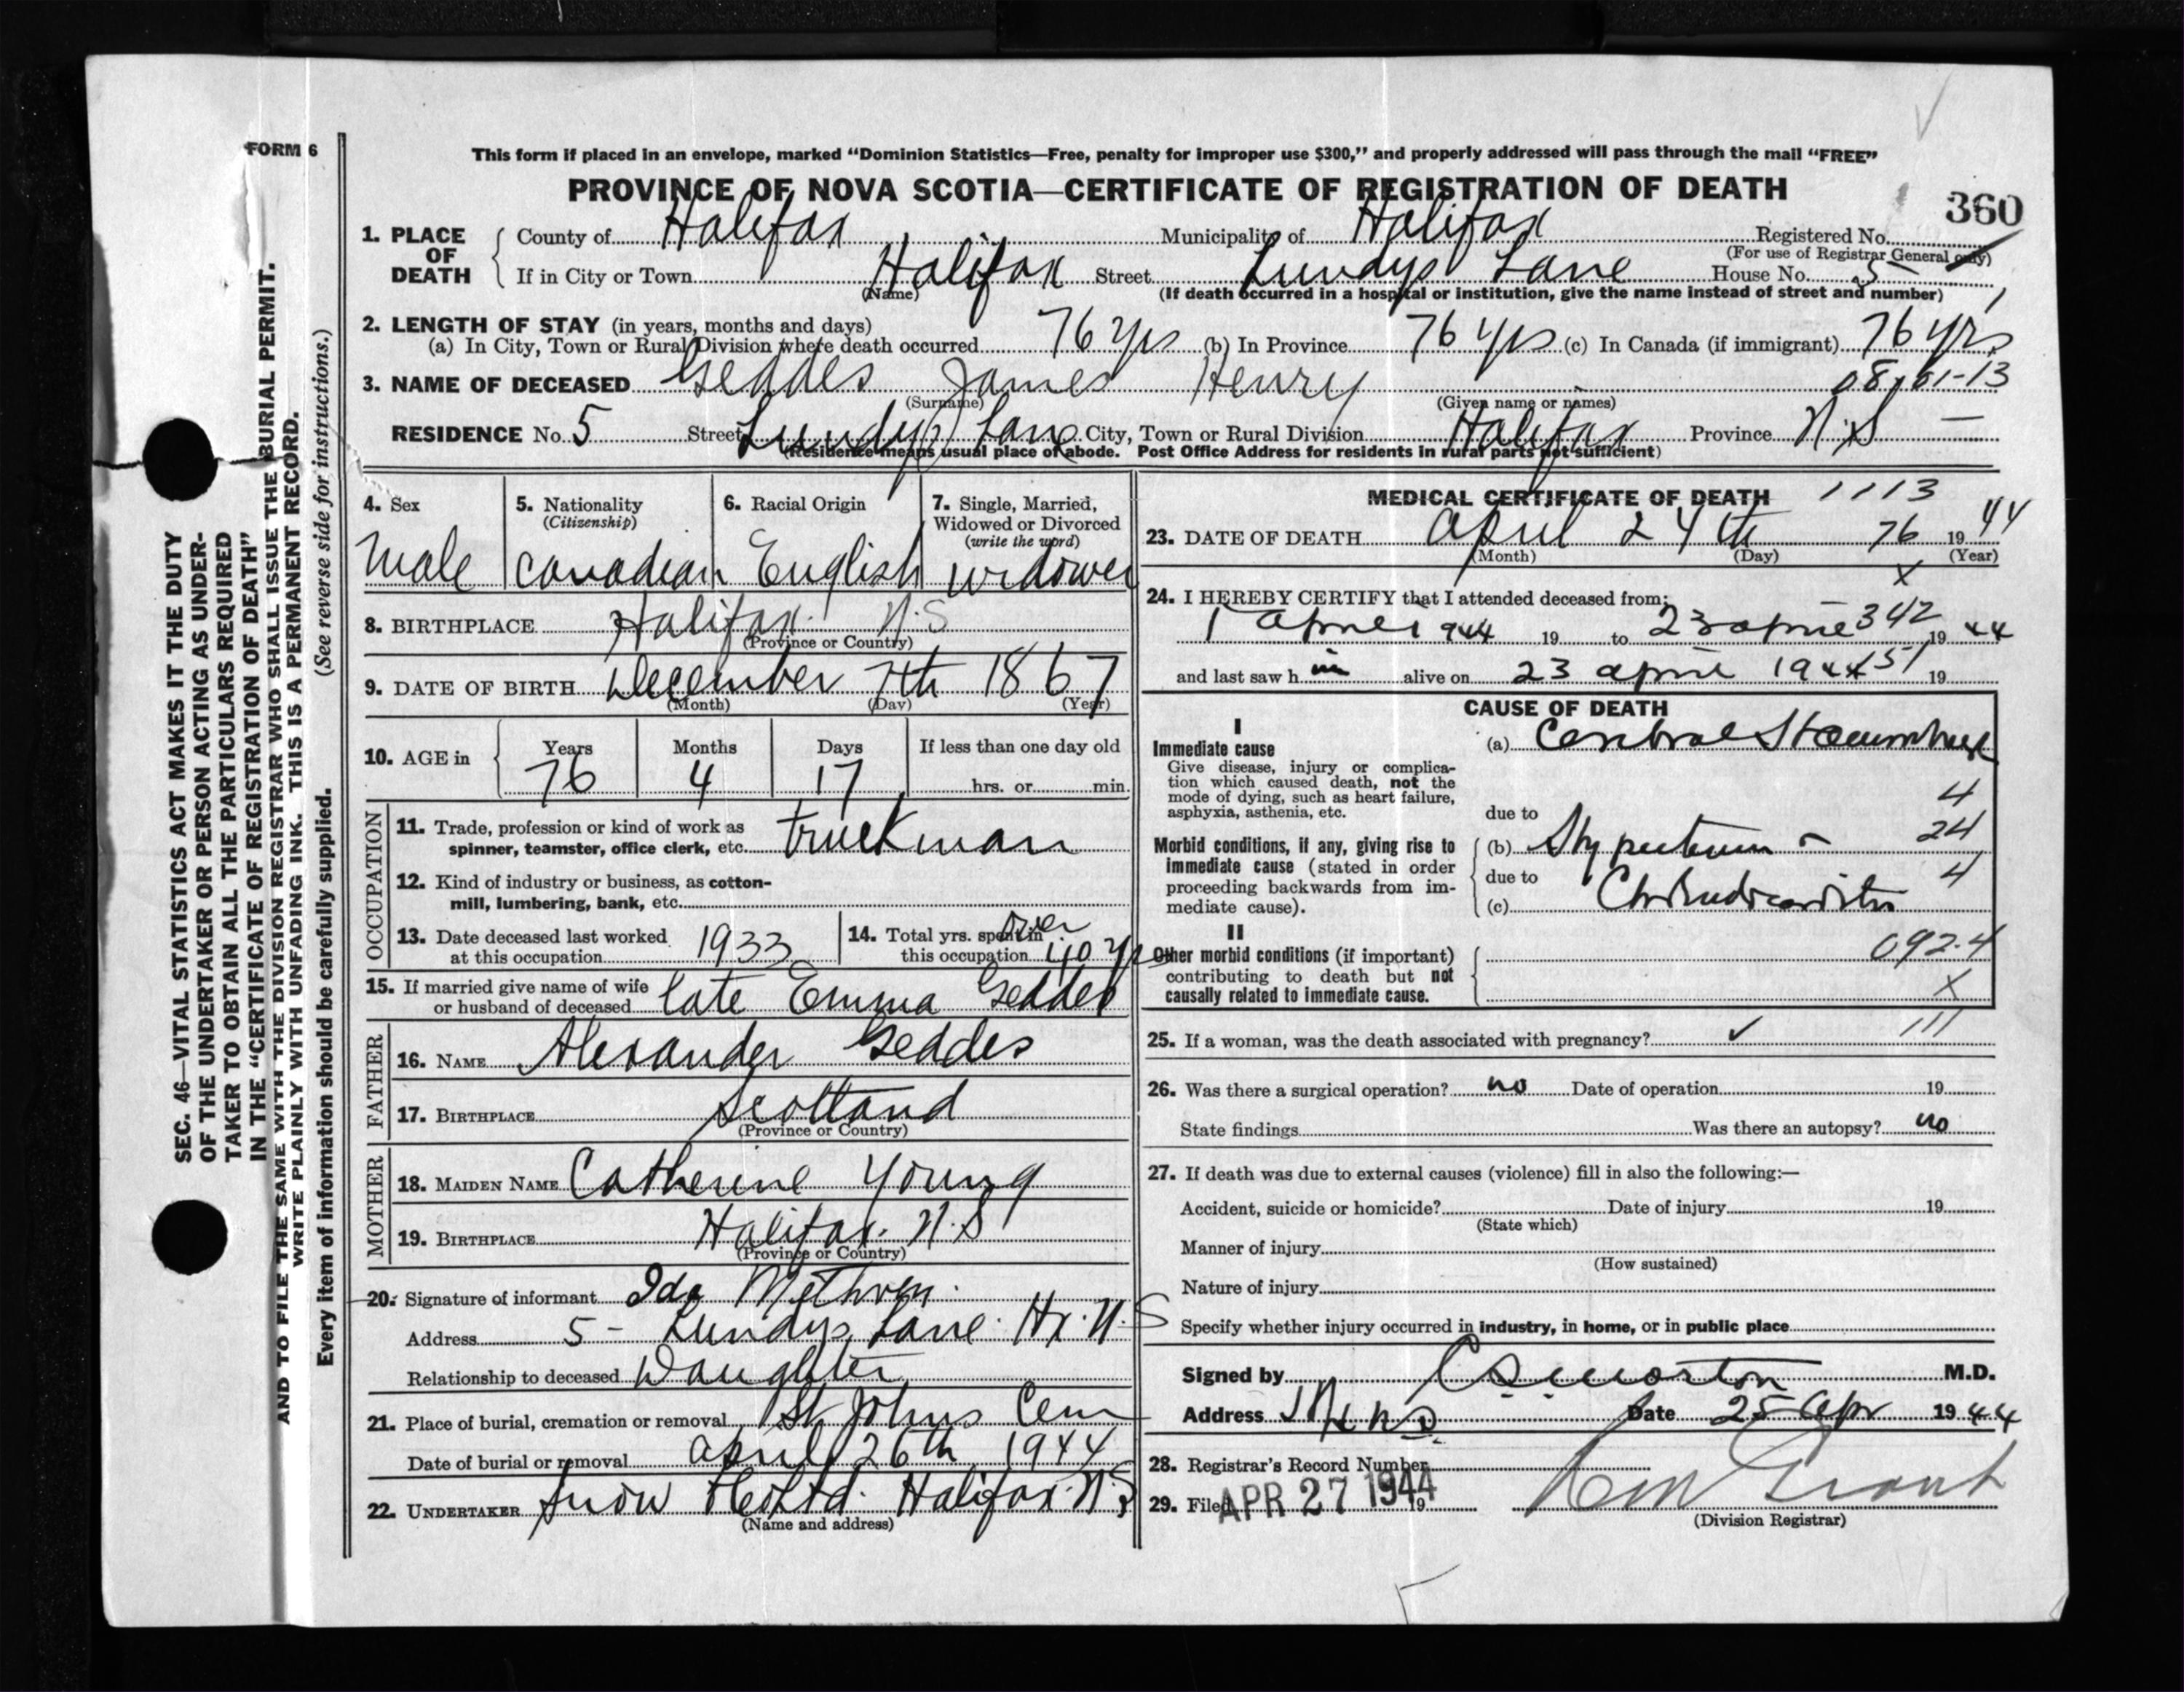 FORM 6
This form if placed in an envelope, marked “Dominion Statistics—Free, penalty for improper use $300,” and properly addressed will pass through the mail “FREE”
PROVINCE OF NOVA SCOTIA—CERTIFICATE OF REGISTRATION OF DEATH
360
1. PLACE OF DEATH
County of Halifax Municipality of Halifax Registered No.
(For use of Registrar General only)
If in City or Town Halifax Street Lundys Lane House No. 5
(Name) (If death occurred in a hospital or institution, give the name instead of street and number)
2. LENGTH OF STAY (in years, months and days)
(a) In City, Town or Rural Division where death occurred 76 yrs (b) In Province 76 yrs (c) In Canada (if immigrant) 76 yrs
3. NAME OF DECEASED Geddes James Henry
(Surname) (Given name or names)
RESIDENCE No. 5 Street Lundys Lane City, Town or Rural Division Halifax Province N.S —
(Residence means usual place of abode. Post Office Address for residents in rural parts not sufficient)
4. Sex
Male
5. Nationality
(Citizenship)
Canadian
6. Racial Origin
English
7. Single, Married,
Widowed or Divorced
(write the word)
widower
8. BIRTHPLACE Halifax. N.S
(Province or Country)
9. DATE OF BIRTH December 7th 1867
(Month) (Day) (Year)
10. AGE in Years Months Days If less than one day old
76 4 17 hrs. or min.
OCCUPATION
11. Trade, profession or kind of work as
spinner, teamster, office clerk, etc. truckman
12. Kind of industry or business, as cotton-
mill, lumbering, bank, etc.
13. Date deceased last worked
at this occupation 1933
14. Total yrs. spent in
this occupation over 40 yrs
15. If married give name of wife
or husband of deceased late Emma Geddes
FATHER
16. NAME Alexander Geddes
17. BIRTHPLACE Scotland
(Province or Country)
MOTHER
18. MAIDEN NAME Catherine Young
19. BIRTHPLACE Halifax. N.S
(Province or Country)
20. Signature of informant Ida Methven.
Address 5 - Lundys Lane. Hx. N.S
Relationship to deceased Daughter
21. Place of burial, cremation or removal St Johns Cem
Date of burial or removal April 26th 1944
22. UNDERTAKER Snow & Co Ltd. Halifax. N.S
(Name and address)
MEDICAL CERTIFICATE OF DEATH 1113
23. DATE OF DEATH April 24th 76 1944
(Month) (Day) (Year)
X
24. I HEREBY CERTIFY that I attended deceased from:
1 April 1944 19 to 23 April 342 19 44
and last saw h im alive on 23 April 1944 51 19
CAUSE OF DEATH
I
Immediate cause
Give disease, injury or complica-
tion which caused death, not the
mode of dying, such as heart failure,
asphyxia, asthenia, etc.
(a) Cerebral Haemorrhage
4
due to
Morbid conditions, if any, giving rise to
immediate cause (stated in order
proceeding backwards from im-
mediate cause).
(b) Hypertension 24
due to 4
(c) Ch Endocarditis
II
Other morbid conditions (if important)
contributing to death but not
causally related to immediate cause.
092.4
X
25. If a woman, was the death associated with pregnancy? ✓ 111
26. Was there a surgical operation? no Date of operation 19
State findings Was there an autopsy? no
27. If death was due to external causes (violence) fill in also the following:—
Accident, suicide or homicide? Date of injury 19
(State which)
Manner of injury
(How sustained)
Nature of injury
Specify whether injury occurred in industry, in home, or in public place
Signed by C S Morton M.D.
Address Hx N.S. Date 25 Apr 1944
28. Registrar's Record Number
29. Filed APR 27 1944 19
(Division Registrar)
SEC. 46—VITAL STATISTICS ACT MAKES IT THE DUTY
OF THE UNDERTAKER OR PERSON ACTING AS UNDER-
TAKER TO OBTAIN ALL THE PARTICULARS REQUIRED
IN THE “CERTIFICATE OF REGISTRATION OF DEATH”
AND TO FILE THE SAME WITH THE DIVISION REGISTRAR WHO SHALL ISSUE THE BURIAL PERMIT.
WRITE PLAINLY WITH UNFADING INK. THIS IS A PERMANENT RECORD.
Every item of information should be carefully supplied. (See reverse side for instructions.)